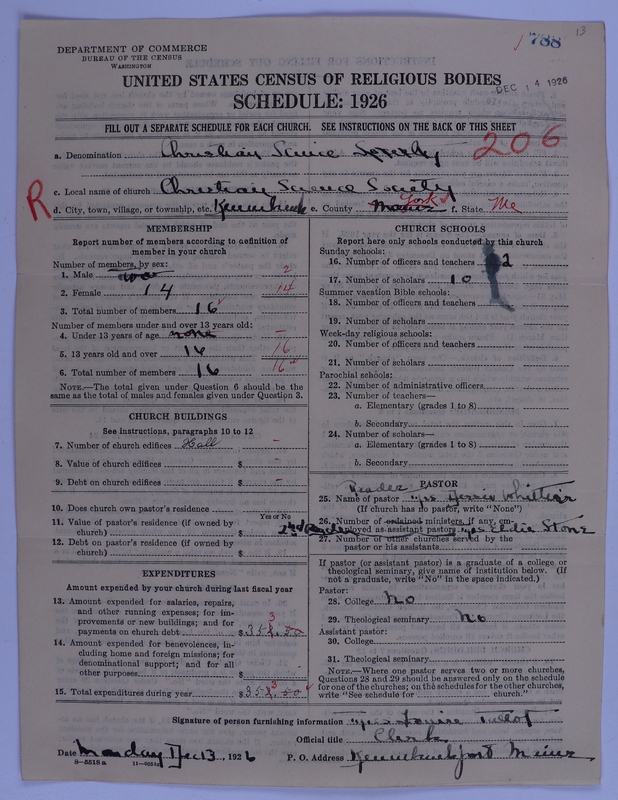 13
788
DEPARTMENT OF COMMERCE
BUREAU OF THE CENSUS
WASHINGTON
UNITED STATES CENSUS OF RELIGIOUS BODIES
DEC 14 1926
SCHEDULE: 1926
FILL OUT A SEPARATE SCHEDULE FOR EACH CHURCH. SEE INSTRUCTIONS ON THE BACK OF THIS SHEET
206
a. Denomination Christian Science Society
R
c. Local name of church Christian Science Society
d. City, town, village, or township, etc. Kennebunk e. County Maine York f. State Me
MEMBERSHIP
Report number of members according to definition of member in your church
Number of members, by sex:
1. Male two 2
2. Female 14 14
3. Total number of members 16
Number of members under and over 13 years old:
4. Under 13 years of age none –
5. 13 years old and over 16 16
6. Total number of members 16 16
NOTE.—The total given under Question 6 should be the
same as the total of males and females given under Question 3.
CHURCH BUILDINGS
See instructions, paragraphs 10 to 12
7. Number of church edifices Hall –
8. Value of church edifices $ –
9. Debt on church edifices $ –
10. Does church own pastor's residence?
Yes or No
11. Value of pastor's residence (if owned by
church) $
12. Debt on pastor's residence (if owned by
church) $
EXPENDITURES
Amount expended by your church during last fiscal year
13. Amount expended for salaries, repairs,
and other running expenses; for im-
provements or new buildings; and for
payments on church debt $ 352.50 3
14. Amount expended for benevolences, in-
cluding home and foreign missions; for
denominational support; and for all
other purposes $ -
15. Total expenditures during year $ 352.50 3
CHURCH SCHOOLS
Report here only schools conducted by this church
Sunday schools:
16. Number of officers and teachers 2
17. Number of scholars 10
Summer vacation Bible schools:
18. Number of officers and teachers
19. Number of scholars
Week-day religious schools:
20. Number of officers and teachers
21. Number of scholars
Parochial schools:
22. Number of administrative officers
23. Number of teachers—
a. Elementary (grades 1 to 8)
b. Secondary
24. Number of scholars—
a. Elementary (grades 1 to 8)
b. Secondary
PASTOR
Reader
25. Name of pastor Mrs Whittier
(If church has no pastor, write "None")
26. Number of ordained ministers, if any, em-
2nd Reader ployed as assistant pastors Mrs Stone
27. Number of other churches served by the
pastor or his assistants
If pastor (or assistant pastor) is a graduate of a college or
theological seminary, give name of institution below. (If
not a graduate, write "No" in the space indicated.)
Pastor:
28. College No
29. Theological seminary No
Assistant pastor:
30. College
31. Theological seminary
NOTE.—Where one pastor serves two or more churches,
Questions 28 and 29 should be answered only on the schedule
for one of the churches; on the schedules for the other churches,
write "See schedule for church."
Signature of person furnishing information Mrs Louise Talbot
Official title Clerk
Date Monday Dec 13, 1926 P. O. Address Kennebunkport Maine
8—5518a 11—9051